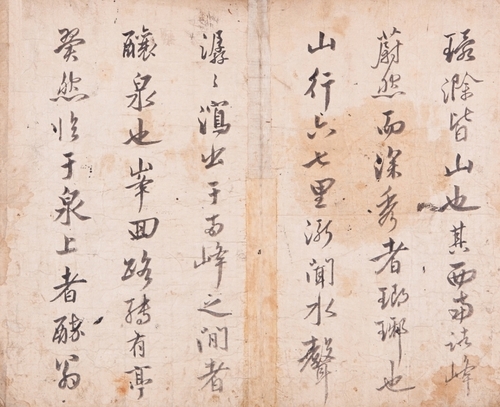 環滁皆山也其西南諸峰
蔚然而深秀者瑯琊也
山行六七里漸聞水聲
潺〻瀉出于兩峰之間者
釀泉也峯回路轉有亭
翼然臨于泉上者醉翁